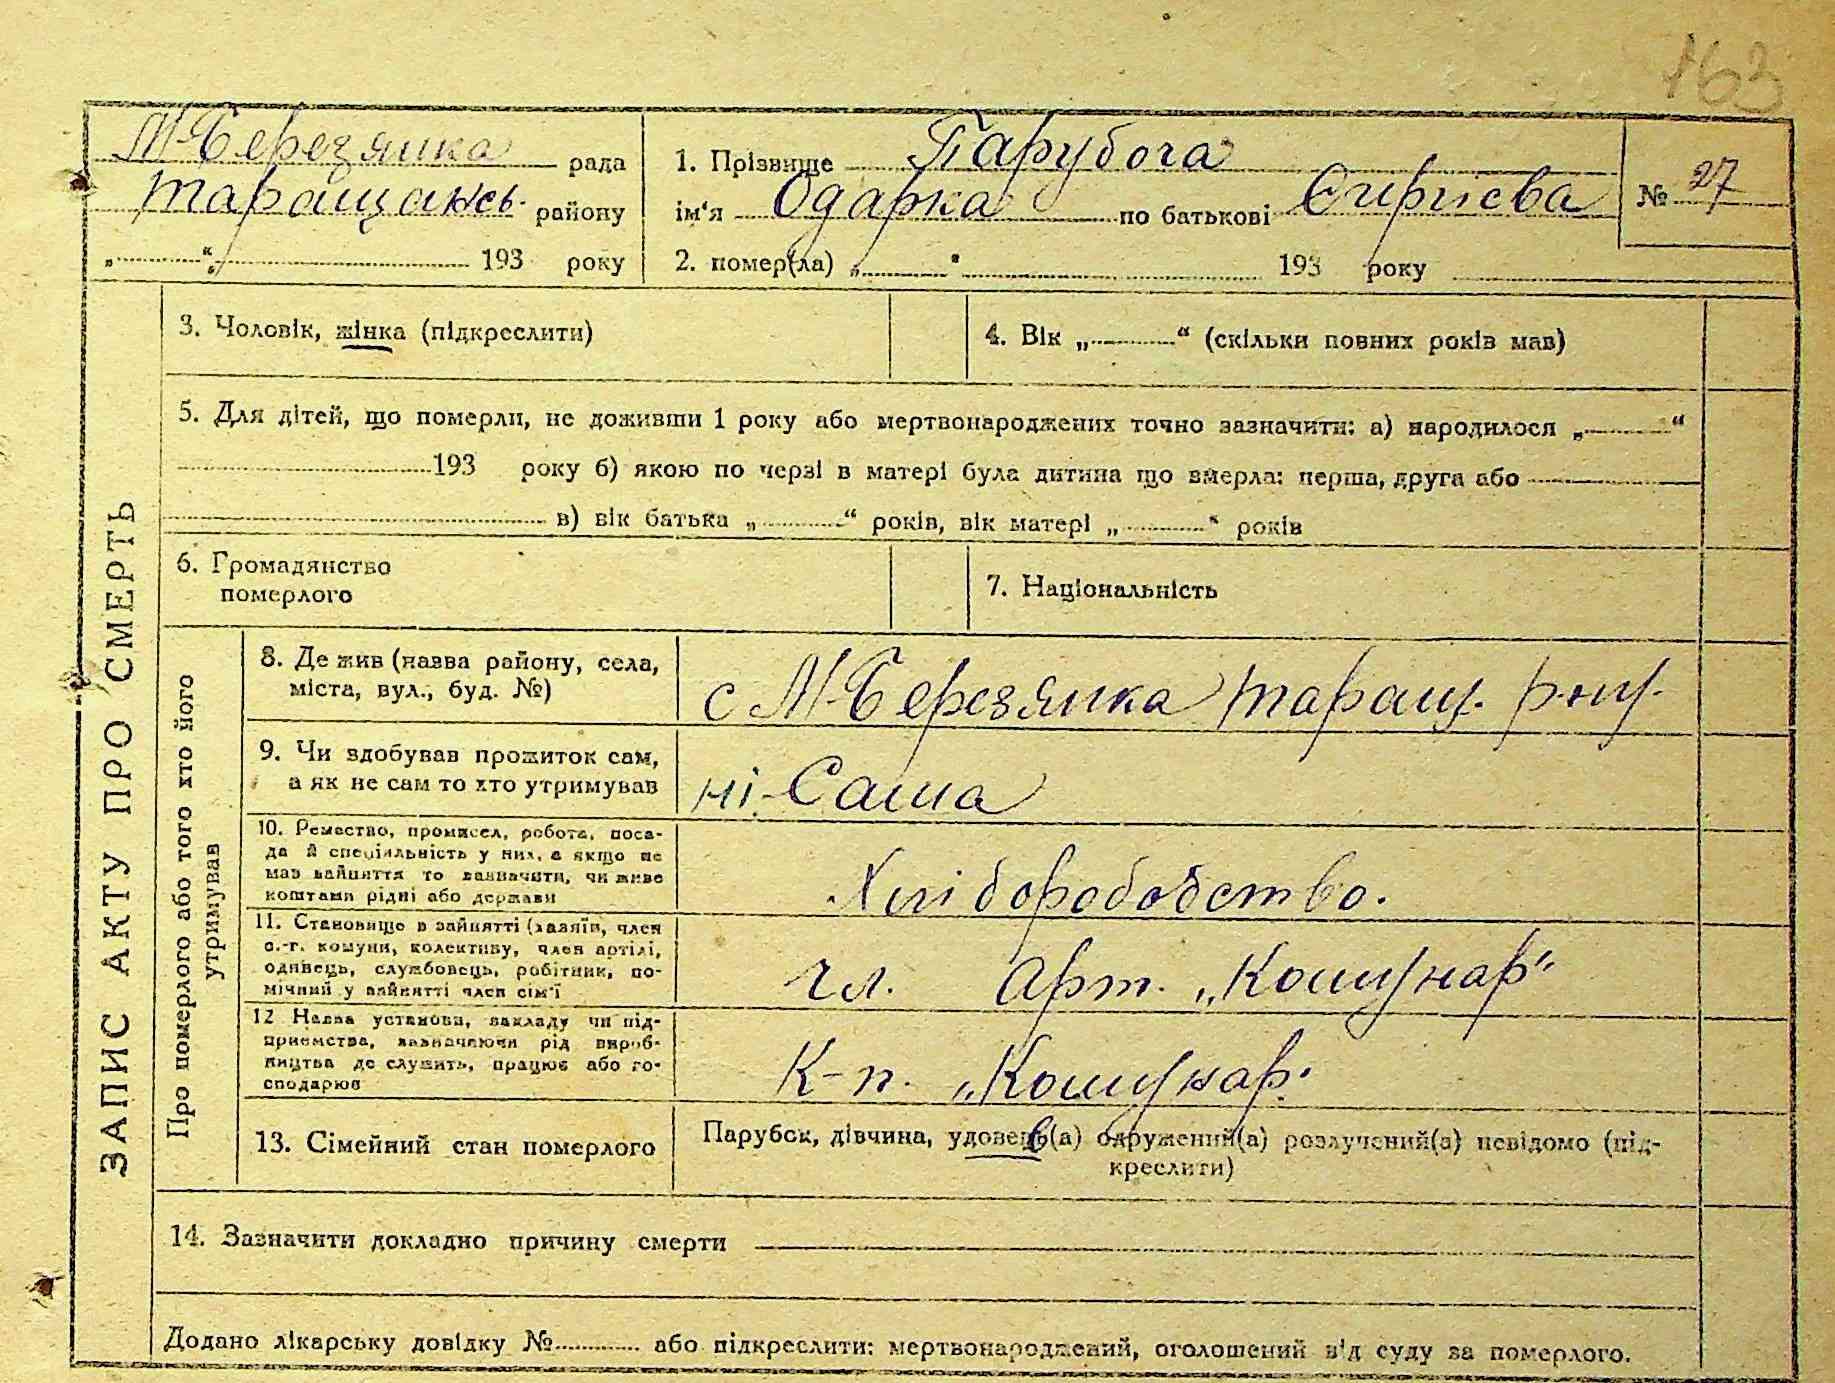 163
М-Березянка рада
Таращансь. району
„ “ 193 року
1. Прізвище Паруботa
ім'я Одарка по батькові Єгиргієва
2. помер(ла) „ “ 193 року
№ 27
ЗАПИС АКТУ ПРО СМЕРТЬ
3. Чоловік, жінка (підкреслити)
4. Вік „ “ (скільки повних років мав)
5. Для дітей, що померли, не доживши 1 року або мертвонароджених точно зазначити: а) народилося „ “
193 року б) якою по черзі в матері була дитина що вмерла: перша, друга або
в) вік батька „ “ років, вік матері „ “ років
6. Громадянство
померлого
7. Національність
Про померлого або того хто його
утримував
8. Де жив (назва району, села,
міста, вул., буд. №)
с М-Березянка Таращ. р-ну.
9. Чи здобував прожиток сам,
а як не сам то хто утримував
ні. Сама
10. Ремество, промисел, робота, поса-
да й спеціяльність у них, а якщо не
мав зайняття то зазначити, чи живе
коштами рідні або держави
Хліборобобство.
11. Становище в зайнятті (хазяїн, член
с.-г. комуни, колективу, член артілі,
одинець, службовець, робітник, по-
мічний у зайнятті член сім'ї
чл. Арт. „Комунар“
12 Назва установи, закладу чи під-
приємства, зазначаючи рід вироб-
ництва де служить, працює або го-
сподарює
К-п. „Комунар.
13. Сімейний стан померлого
Парубок, дівчина, удовець(а) одружений(а) розлучений(а) невідомо (під-
креслити)
14. Зазначити докладно причину смерти
Додано лікарську довідку № або підкреслити: мертвонароджений, оголошений від суду за померлого.